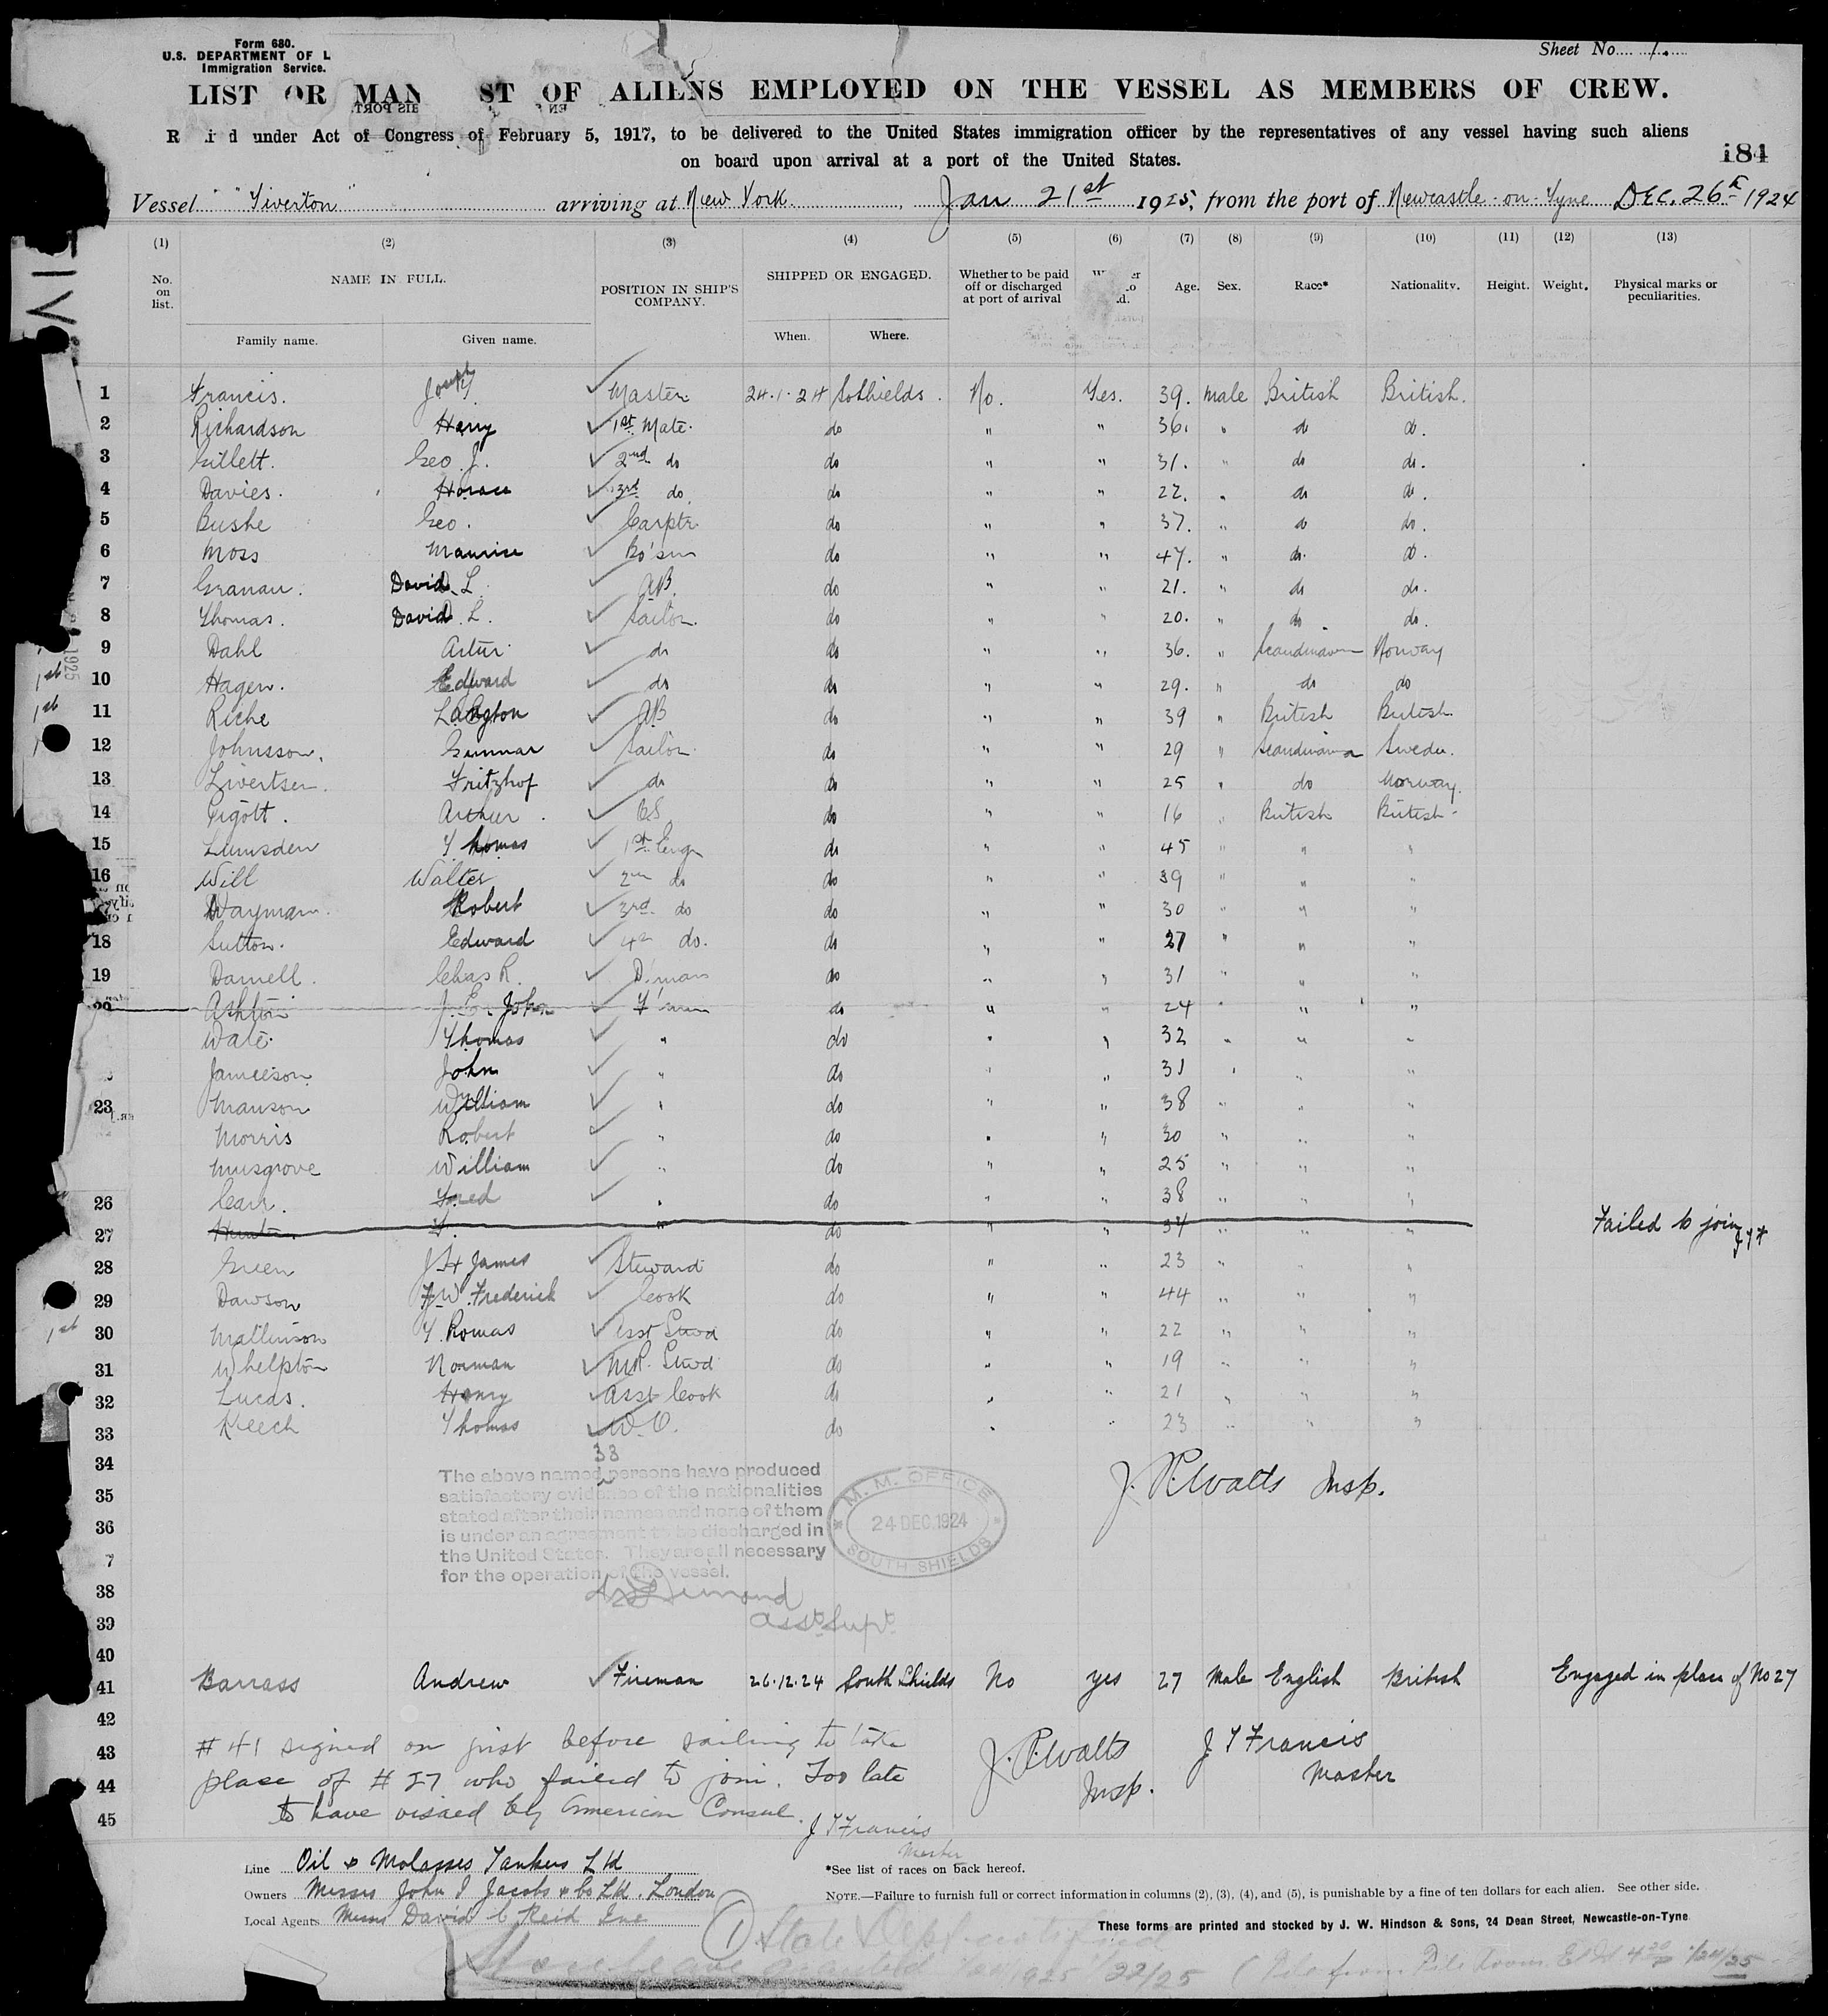 Form 680.
U.S. DEPARTMENT OF L
Immigration Service.
Sheet No. 1.
LIST OR MAN ST OF ALIENS EMPLOYED ON THE VESSEL AS MEMBERS OF CREW.
R i d under Act of Congress of February 5, 1917, to be delivered to the United States immigration officer by the representatives of any vessel having such aliens
on board upon arrival at a port of the United States.
184
Vessel "Tiverton" arriving at New York. Jan 21st 1925, from the port of Newcastle-on-Tyne DEC. 26th 1924
(1) (2) (3) (4) (5) (6) (7) (8) (9) (10) (11) (12) (13)
No. on list. NAME IN FULL. POSITION IN SHIP'S COMPANY. SHIPPED OR ENGAGED. Whether to be paid off or discharged at port of arrival Age. Sex. Race* Nationality. Height. Weight. Physical marks or peculiarities.
Family name. Given name. When. Where.
1 Francis. Joseph Master 24.1.24 So Shields. No. Yes. 39. Male British British.
2 Richardson Harry 1st Mate. do " " 36. " do do.
3 Gillett. Geo. J. 2nd do do " " 31. " do do.
4 Davies. Horace 3rd do. do " " 22. " do do.
5 Bushe Geo. Carptr. do " " 37. " do do.
6 Moss Maurice Bo'sun do " " 47. " do. do.
7 Granau. David. L. AB. do " " 21. " do do.
8 Thomas. David. L. Sailor. do " " 20. " do. do.
9 Dahl Artur. do do " " 36. " Scandinavian Norway
10 Hagen. Edward do do " " 29. " do do
11 Riche Langton AB do " " 39 " British British
12 Johnsson. Gunnar Sailor do " " 29 " Scandinavian Sweden.
13 Sivertsen. Fritzhof do do " " 25 " do Norway.
14 Pigott. Arthur. OS do " " 16 " British British
15 Lumsden Thomas 1st Engr do " " 45 " " "
16 Will Walter 2nd do do " " 39 " " "
Wayman. Robert 3rd do do " " 30 " " "
18 Sutton. Edward 4th do. do " " 27 " " "
19 Darnell. Chas R. D'man do " " 31 " " "
20 Ashton J. E. John F'man do " " 24 " " "
Wate. Thomas " do " " 32 " " "
Jamieson John " do " " 31 " " "
23 Manson William " do " " 38 " " "
Morris Robert " do " " 30 " " "
Musgrove William " do " " 25 " " "
26 Carr. Fred " do " " 38 " " "
27 Hunter T. " do " " 34 " " " Failed to join J.T.F
28 Green J. H James Steward do " " 23 " " "
29 Dawson F.W. Frederick Cook do " " 44 " " "
30 Mallinson Thomas Asst Stwd do " " 22 " " "
31 Whelpton Norman MR. Stwd do " " 19 " " "
32 Lucas. Henry Asst Cook do " " 21 " " "
33 Keech Thomas W.O. do " " 23 " " "
34 33
35 The above named persons have produced
satisfactory evidence of the nationalities
stated after their names and none of them
36 is under an agreement to be discharged in
7 the United States. They are all necessary
for the operation of the vessel.
M. M. OFFICE
24 DEC. 1924
SOUTH SHIELDS
J. P. Watts Insp.
38
39 Asst Supt
40
41 Barrass Andrew Fireman 26.12.24 South Shields No yes 27 Male English British Engaged in place of No 27
42
43 # 41 signed on just before sailing to take
44 place of # 27 who failed to join. Too late
45 to have visaed by American Consul.
J T Francis
Master
J. P. Watts
Insp.
J T Francis
Master
Line Oil & Molasses Tankers Ltd
Owners Messrs John I Jacobs & Co Ltd. London
Local Agents Messrs David C Reid Inc
*See list of races on back hereof.
NOTE.—Failure to furnish full or correct information in columns (2), (3), (4), and (5), is punishable by a fine of ten dollars for each alien. See other side.
These forms are printed and stocked by J. W. Hindson & Sons, 24 Dean Street, Newcastle-on-Tyne
1 State Dept notified
1/22/25